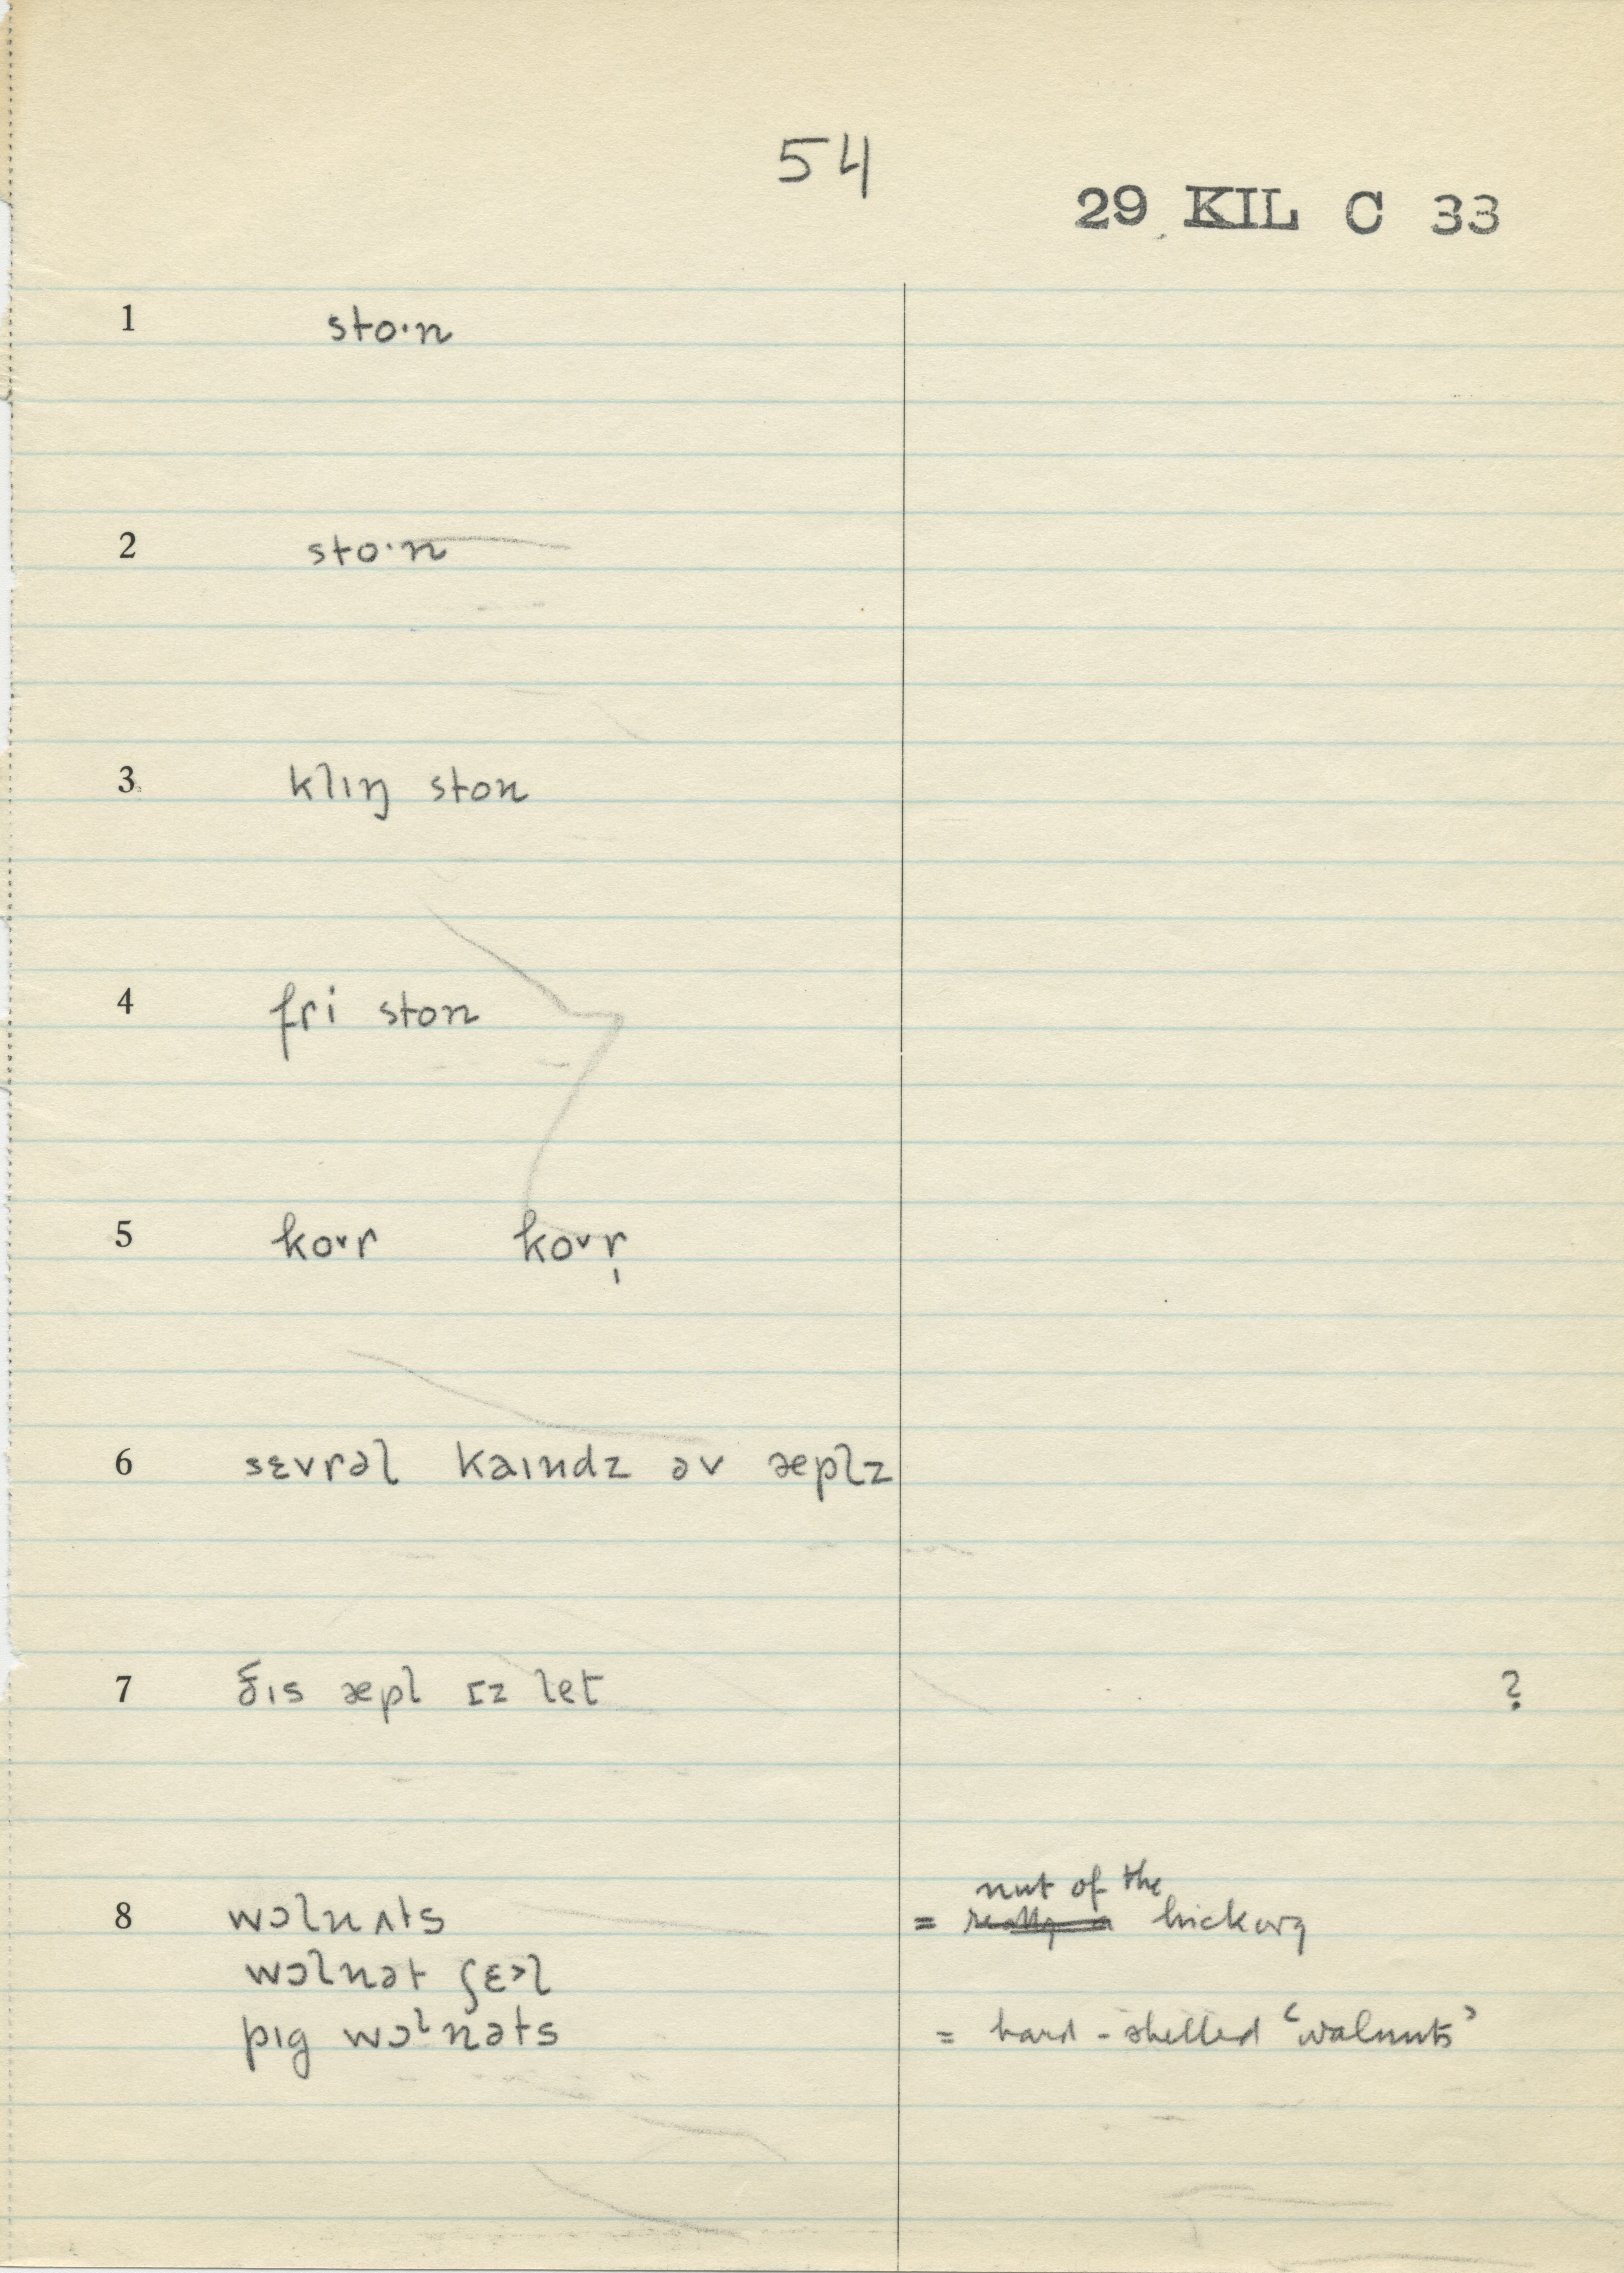 54
29 KIL C 33
1 sto·n
2 sto·n
3 klɪŋ ston
4 fri ston
5 ko˅r ko˅r̩
6 sɛvrəl kaɪndz əv æplz
7 ðɪs æpl ɪz let ?
8 wɔlnʌts = nut of the hickory
wɔlnət ʃɛ˃l
pɪg wɔˡnəts = hard-shelled ‘walnuts’